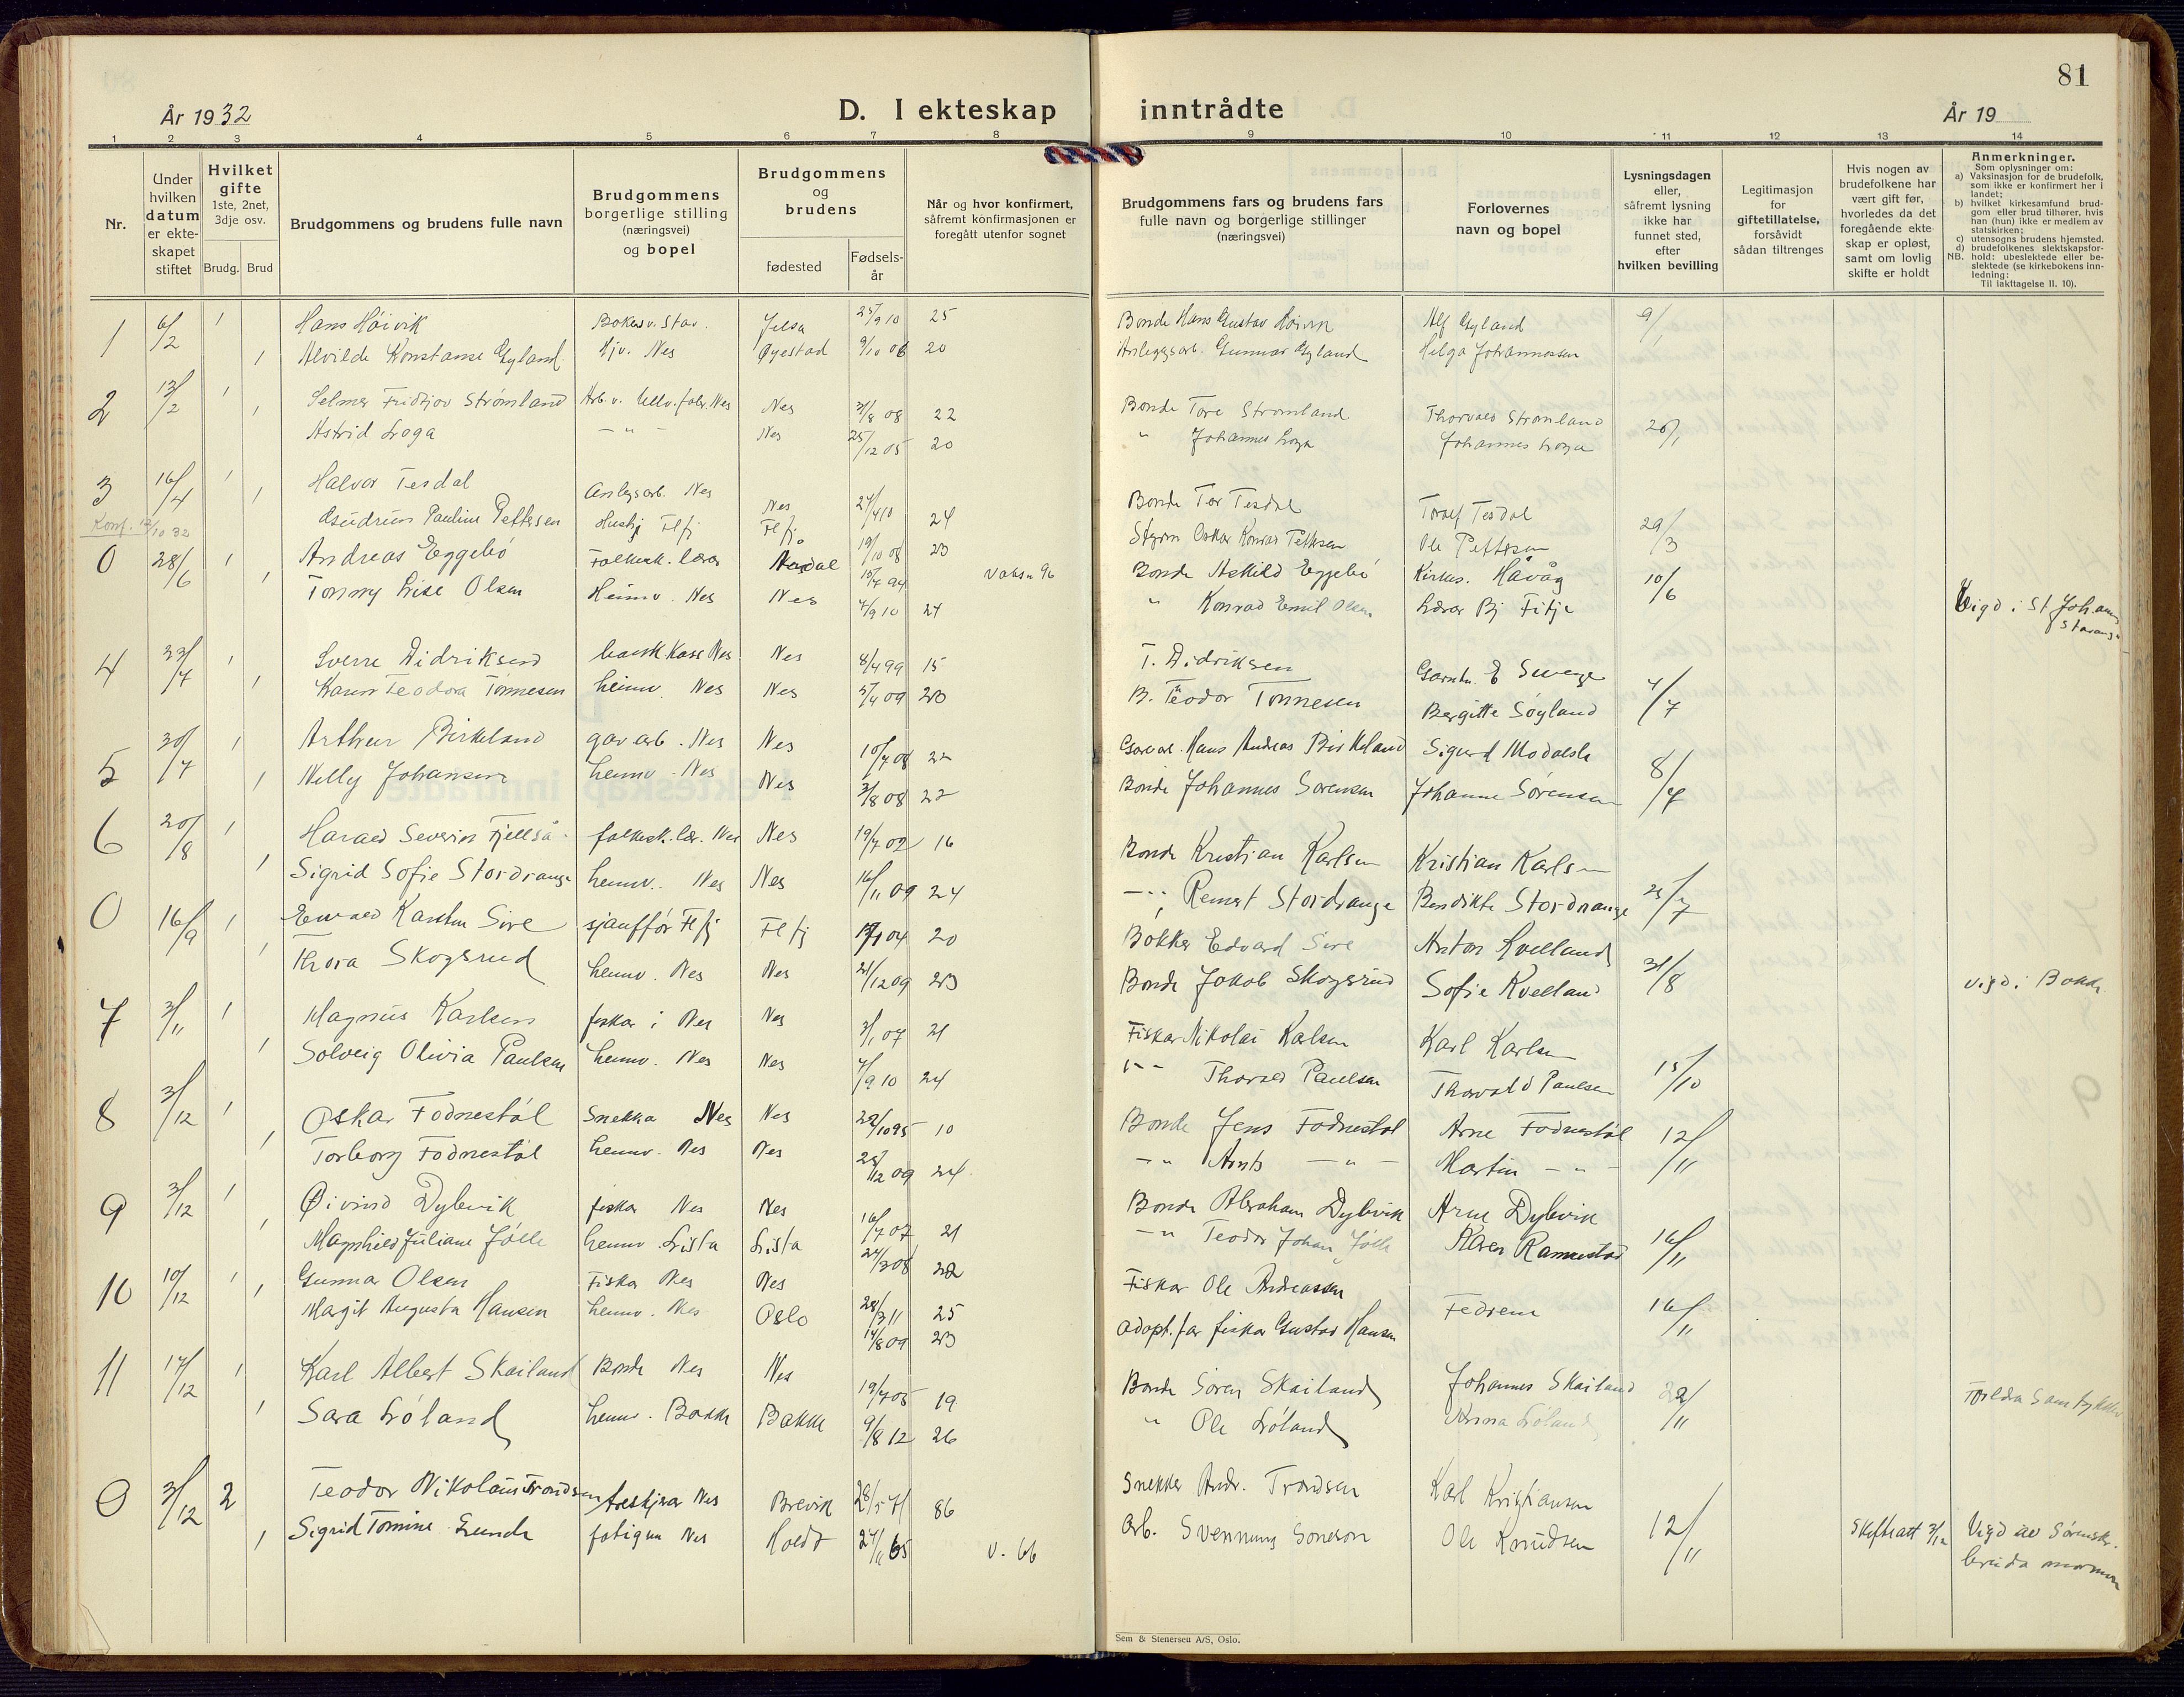 81
År 1932
D. I ekteskap inntrådte
År 19
1 2 3 4 5 6 7 8 9 10 11 12 13 14
Nr.
Under hvilken datum er ekteskapet stiftet
Hvilket gifte 1ste, 2net, 3dje osv.
Brudg. Brud
Brudgommens og brudens fulle navn
Brudgommens borgerlige stilling (næringsvei) og bopel
Brudgommens og brudens
fødested
Fødselsår
Når og hvor konfirmert, såfremt konfirmasjonen er foregått utenfor sognet
Brudgommens fars og brudens fars fulle navn og borgerlige stillinger (næringsvei)
Forlovernes navn og bopel
Lysningsdagen eller, såfremt lysning ikke har funnet sted, efter hvilken bevilling
Legitimasjon for giftetillatelse, forsåvidt sådan tiltrenges
Hvis nogen av brudefolkene har vært gift før, hvorledes da det foregående ekteskap er opløst, samt om lovlig skifte er holdt
Anmerkninger.
Som oplysninger om:
a) Vaksinasjon for de brudefolk, som ikke er konfirmert her i landet;
b) hvilket kirkesamfund brudgom eller brud tilhører, hvis han (hun) ikke er medlem av statskirken;
c) utensogns brudens hjemsted.
d) brudefolkenes slektskapsforhold: ubeslektede eller beslektede (se kirkebokens innledning:
NB.
Til iakttagelse II. 10).
1 6/2 1 Hans Höivik Jelsa 25/9 10 25 Bonde Hans Gustav Höivik Alf Gyland 9/1
1 Alvilde Konstanse Gyland Hjv. Nes Øyestad 9/10 06 20 Anleggsarb. Gunnar Gyland Helga Johannessen
2 13/2 1 Selmer Fridtjov Strømland Arb. v. Ullv.fabr. Nes Nes 31/8 08 22 Bonde Tore Strømland Thorvald Strømland 26/1
1 Astrid Loga - " - Nes 25/12 05 20 " Johannes Loga Johannes Loga
3 16/4 1 Halvor Tesdal Anlegsarb. Nes Nes 24 Bonde Tor Tesdal Toralf Tesdal 29/3
1 Gudrun Pauline Pettersen Flfj. Flfj. 19/10 08 23 Oskar Konrad Pettersen Ole Pettersen
Konf. 12/10 32
0 28/6 1 Andreas Eggebö Folkesk. lærer 15/7 94 Bonde Askild Eggebö Kirkes. Håvåg 10/6
1 Tommy Lise Olsen Heimv. Nes Nes 4/9 10 24 " Konrad Emil Olsen Lærer Bj Fitje Vigd i St Johannes
4 23/7 1 Sverre Didriksen Nes Nes 8/4 99 15 T. Didriksen 4/7
1 Karen Teodora Tönnesen heimv. Nes Nes 5/4 09 23 B. Teodor Tönnesen Bergitte Söyland
5 30/7 1 Arthur Birkeland garv arb. Nes Nes 10/7 08 22 Garv.arb. Hans Andreas Birkeland Sigurd Modalsli 8/7
1 Nelly Johansen heimv. Nes Nes 3/8 08 22 Bonde Johannes Sørensen Johanne Sørensen
6 20/8 1 Harald Severin Fjellså folkesk. lær. Nes Nes 19/7 02 16 Bonde Kristian Karlsen Kristian Karlsen 25/7
1 Sigrid Sofie Stordrange heimv. Nes Nes 16/11 09 24 - " Reinert Stordrange Bendikte Stordrange
0 16/9 1 Karsten Sire sjauffør Flfj Flfj 04 20 Bökker Edvard Sire Anton Kvelland 31/8
1 Thora Skogsrud heimv. Nes Nes 21/12 09 23 Bonde Jakob Skogsrud Sofie Kvelland vigd i Bakke
7 3/11 1 Magnus Karlsen fiskar i Nes Nes 3/1 07 21 Fiskar Nikolai Karlsen Karl Karlsen 15/10
1 Solveig Olivia Paulsen heimv. Nes Nes 7/9 10 24 " - Thorvald Paulsen Thorvald Paulsen
8 3/12 1 Oskar Fodnestöl Snekka Nes Nes 22/10 95 10 Bonde Jens Fodnestöl Arne Fodnestöl 12/11
1 Torborg Fodnestöl heimv. Nes Nes 25/12 09 24 - " - " - Martin - " -
9 3/12 1 Øivind Dybvik fiskar Nes Nes 16/7 07 21 Bonde Abraham Dybvik Arne Dybvik 16/11
1 Magnhild Juliane Jølle heimv. Lista Lista 24/3 08 22 - " Teodor Johan Jølle Karen Rannestad
10 10/12 1 Gunnar Olsen Fiskar Nes Nes 28/3 11 25 Fiskar Ole Andreassen Fedrene 16/11
1 Margit Augusta Hansen heimv. Nes Oslo 14/8 09 23 adopt.far fiskar Gustav Hansen
11 17/12 1 Karl Albert Skailand Bonde Nes Nes 19/7 05 19 Bonde Sören Skailand Johannes Skailand 22/11
1 Sara Löland heimv. Bakke Bakke 9/8 12 26 " Ole Löland Anna Löland
0 3/12 2 Teodor Nikolaus Trondsen Nes Brevik 28/5 71 86 Snekker Andr. Trondsen Karl Kristiansen 12/11
1 Sigrid Tomine Lunde Nes Holdt 65 v. 66 arb. Svennung Ole Knudsen Skifteatt 3/12 Vigd av Sörensk.
Sem & Stenersen A/S, Oslo.